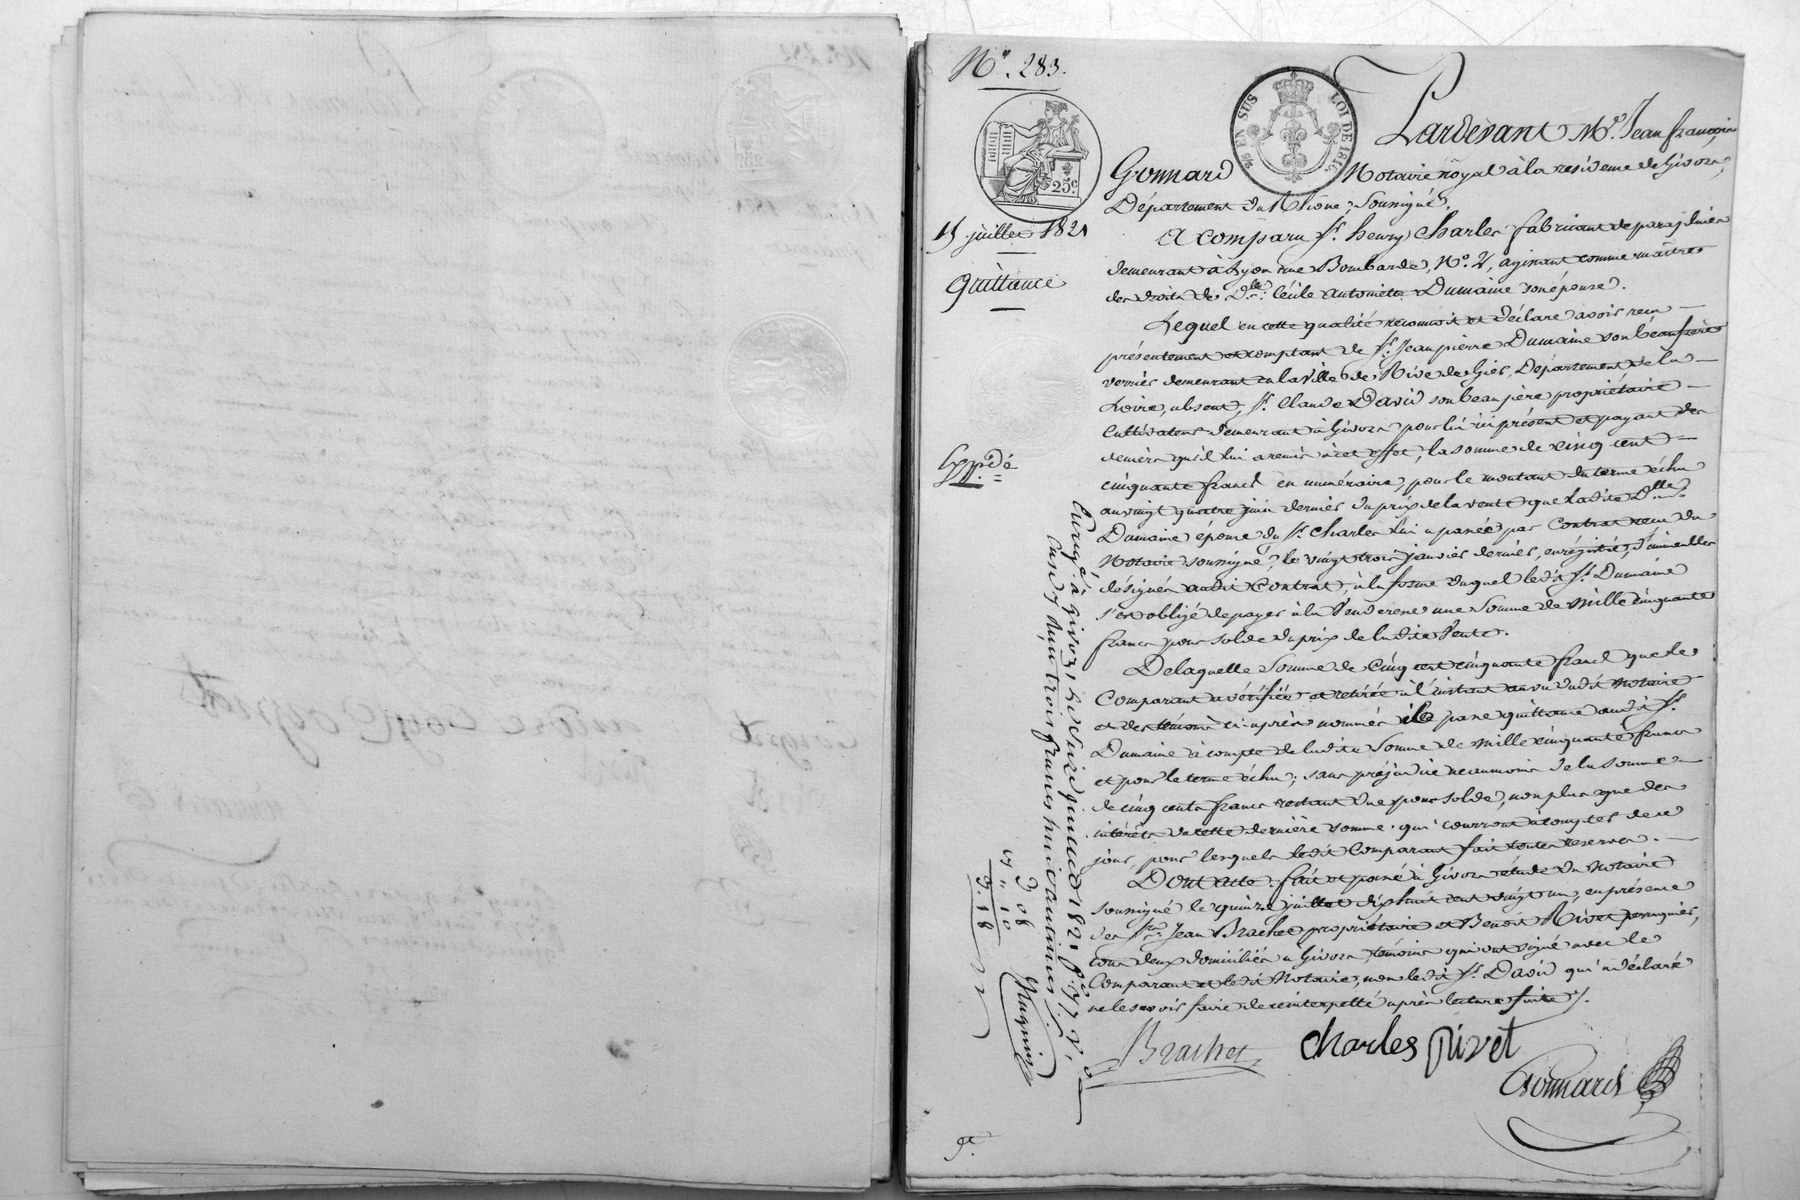 N.° 283.
EN SUS
LOI DE 1816
25 c.
15 juillet 1821
Quittance
Exp.dé
Pardevant M.e Jean françois
Gonnard Notaire royal à la residence de Givors,
Département du Rhône, Soussigné.
A comparu S.r henry Charles fabricant de parapluies
demeurant à Lyon rue Bombarde, N.° 2, agissant comme maître
des droits de D.lle Cécile antoinette Dumaine son épouse.
Lequel en cette qualité reconnoit et déclare avoir reçu
présentement et comptant de S.r Jean pierre Dumaine son beaufrère
verrier demeurant en la ville de Rive de Gier, Département de la
Loire, absent, S.r Claude David son beau père propriétaire
Cultivateur demeurant à Givors pour lui ici présent et payant des
deniers qu'il lui a remis à cet effet, la somme de cinq cent
cinquante francs en numéraire, pour le montant du terme échu
au vingt quatre juin dernier du prix de la vente que ladite D.lle
Dumaine épouse du S.r Charles lui a passée par Contrat reçu du
Notaire soussigné, le vingt trois janvier dernier, enrégistré, d'immeubles
désignés audit Contrat, à la forme duquel ledit S.r Dumaine
s'est obligé de payer à la Venderesse une Somme de Mille cinquante
francs pour solde du prix de ladite Vente.
De laquelle Somme de Cinq cent cinquante francs que le
Comparant a vérifiée et retirée à l'instant au vu dudit Notaire
et des témoins ci après nommés il passe quittance audit S.r
Dumaine à compte de ladite Somme de Mille cinquante francs
et pour le terme échu; sans préjudice neanmoins de la somme
de cinq cents francs restant due pour solde, non plus que des
intérêts de cette dernière somme qui courront à compter de ce
jour, pour lesquels ledit Comparant fait toutes reserves.
Dont acte: fait et passé à Givors étude du Notaire
soussigné le quinze juillet dix huit cent vingt un, en présence
des S.rs Jean Brachet propriétaire et Benoit Rivet perruquier,
tous deux domiciliés à Givors témoins qui ont signé avec le
Comparant et ledit Notaire, non ledit S.r David qui a déclaré
ne le savoir faire de ce interpellé après lecture faite.
Brachet Charles Rivet
Gonnard
Enreg.é à Givors, le seize juillet 1821 f.° 77 V.°
Case 7 Reçu trois francs huit centimes
3 08
" 10
3. 18